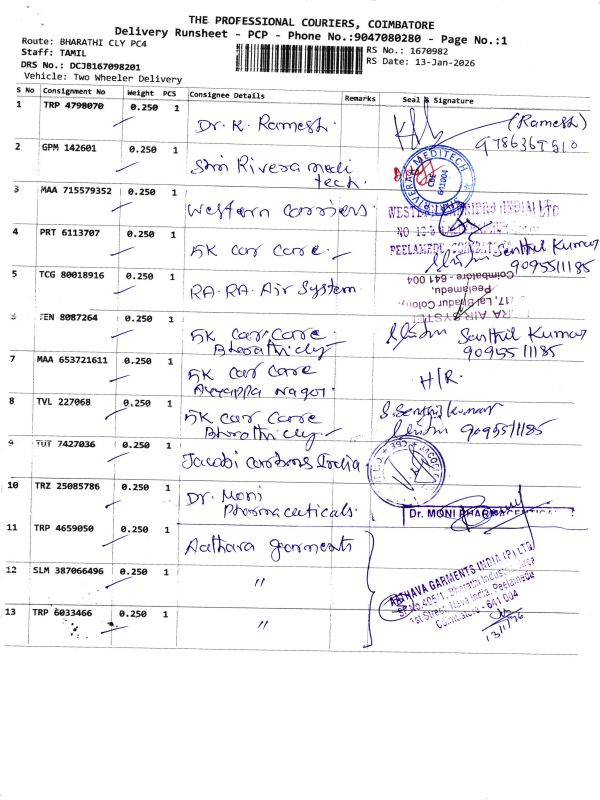 THE PROFESSIONAL COURIERS, COIMBATORE
Delivery Runsheet - PCP - Phone No.:9047080280 - Page No.:1
Route: BHARATHI CLY PC4
RS No.: 1670982
Staff: TAMIL
RS Date: 13-Jan-2026
DRS No.: DCJB167098201
Vehicle: Two Wheeler Delivery
S No Consignment No Weight PCS Consignee Details Remarks Seal & Signature
1 TRP 4798070 0.250 1 Dr. R. Ramesh. (Ramesh)
2 GPM 142601 0.250 1 Shri Rivera medi
tech.
RIVERA MEDITECH
CBE
641004
3 MAA 715579352 0.250 1 Western carriers. WESTERN CARRIERS (INDIA) LTD
4 PRT 6113707 0.250 1 SK car care. Senthil Kumar
PEELAMEDU
9095511185
5 TCG 80018916 0.250 1 RA. RA. Air System.
RA AIR SYSTEM
17, Lal Bahadur Colony,
Peelamedu,
Coimbatore - 641 004
6 TEN 8087264 0.250 1 SK car care. Senthil Kumar
Bharathi cly 9095511185
7 MAA 653721611 0.250 1 SK car care H/R.
Ayyappa Nagar.
8 TVL 227068 0.250 1 SK car care S. Senthil kumar
Bharathi cly 9095511185
9 TUT 7427036 0.250 1 Jacobi carbons India
10 TRZ 25085786 0.250 1 Dr. Moni
Pharmaceuticals. Dr. MONI PHARMACEUTICALS
11 TRP 4659050 0.250 1 Aathava garments
12 SLM 387066496 0.250 1 "
AATHAVA GARMENTS INDIA (P) LTD
SF No.405/1, Bharathi Industrial
1st Street, Nava India, Peelamedu
Coimbatore - 641 004
13 TRP 6033466 0.250 1 "
13/1/26